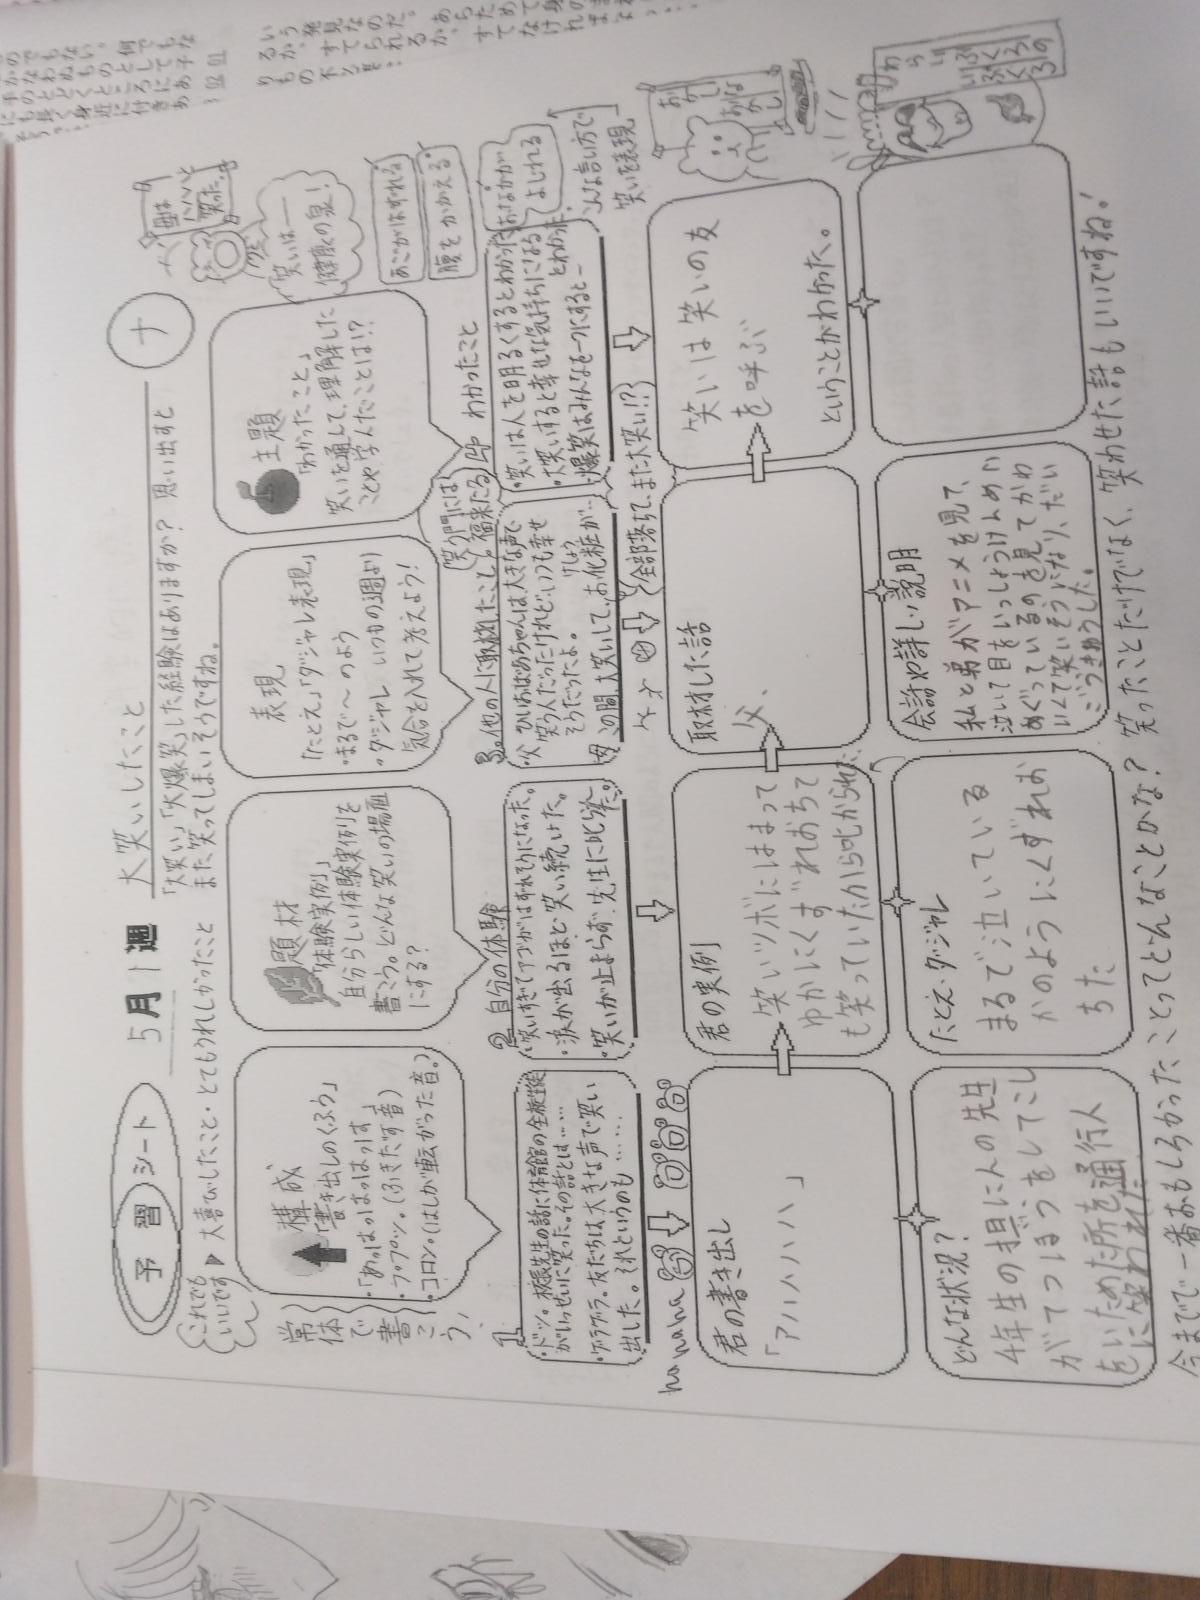 予習シート
5月1週
大笑いしたこと
ナ
これでも
いいです
▶大喜びしたこと・とてもうれしかったこと
「大笑い」「大爆笑」した経験はありますか？ 思い出すと
また笑ってしまいそうですね。
常体で書こう！
構成
「書き出しのくふう」
・「あっはっはっはっは」
・プププッ。(ふきだす音)
・コロン。(はしが転がった音。)
題材
「体験実例」
自分らしい体験実例を
書こう。どんな笑いの場面
にする？
表現
「たとえ」「ダジャレ表現」
・まるで〜のよう
・ダジャレ いつもの週より
気合を入れて考えよう！
主題
「わかったこと」
笑いを通して、理解した
ことや学んだことは!?
母は
ハハハと
笑った。
笑いは―
健康の泉！
あごがはずれる
腹をかかえる
おなかが
よじれる
こんな言い方で
笑いを表現
1
・ドッ。校長先生の話に体育館の全校生徒
がいっせいに笑った。その話とは……
・ゲラゲラ。友だちは、大きな声で笑い
出した。それというのも……
2 自分の体験
・笑いすぎてアゴがはずれそうになった。
・涙が出るほど笑い続けた。
・笑いが止まらず先生に叱られた。
3.他の人に取材したこと
・父 ひいおばあちゃんは大きな声で
笑う人だったけれどいつも幸せ
そうだったよ。
母 この間、大笑いして、お化粧が…
けしょう
全部落ちて、また大笑い!?
笑う門には
福来たる
わかったこと
・笑いは人を明るくするとわかった
・大笑いすると幸せな気持ちになる
とわかった
・爆笑はみんなを一つにすると―
ha ha ha
君の書き出し
「アハハハハ」
君の実例
笑いツボにはまって
ゆかにくずれおちて
も笑っていたからしかられた
取材した話
父、
笑いは笑いの友
を呼ぶ
ということがわかった。
どんな状況？
4年生の担任の先生
がてつぼうをしてこし
をいためた所を通行人
に笑われた
たとえ・ダジャレ
まるで泣いている
かのようにくずれお
ちた
会話や詳しい説明
私と弟がアニメを見て、
泣いて目をいっしょうけんめい
めぐっているのを見てかわ
いくて笑いそうになり、だい
ごうきゅうした。
今までで一番おもしろかったことってどんなことかな？ 笑ったことだけでなく、笑わせた話もいいですね！